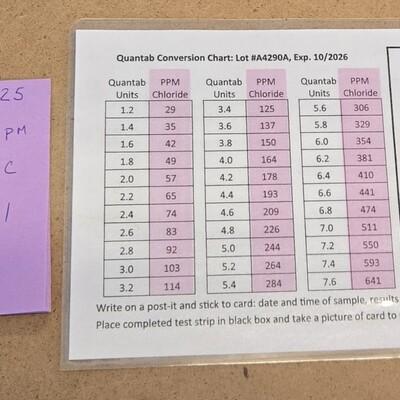 25
PM
C
1
Quantab Conversion Chart: Lot #A4290A, Exp. 10/2026
Quantab Units PPM Chloride Quantab Units PPM Chloride Quantab Units PPM Chloride
1.2 29 3.4 125 5.6 306
1.4 35 3.6 137 5.8 329
1.6 42 3.8 150 6.0 354
1.8 49 4.0 164 6.2 381
2.0 57 4.2 178 6.4 410
2.2 65 4.4 193 6.6 441
2.4 74 4.6 209 6.8 474
2.6 83 4.8 226 7.0 511
2.8 92 5.0 244 7.2 550
3.0 103 5.2 264 7.4 593
3.2 114 5.4 284 7.6 641
Write on a post-it and stick to card: date and time of sample, results
Place completed test strip in black box and take a picture of card to